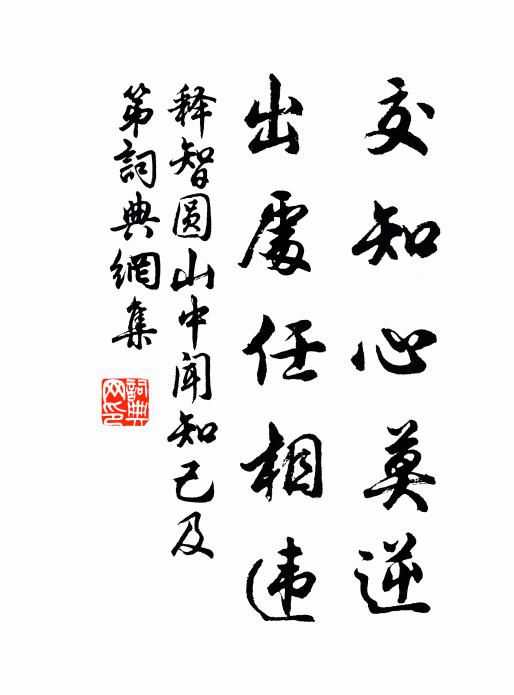 交知心莫逆
出處任相违
释智圆山中闻知己及
第詞典網集
詞典
网印